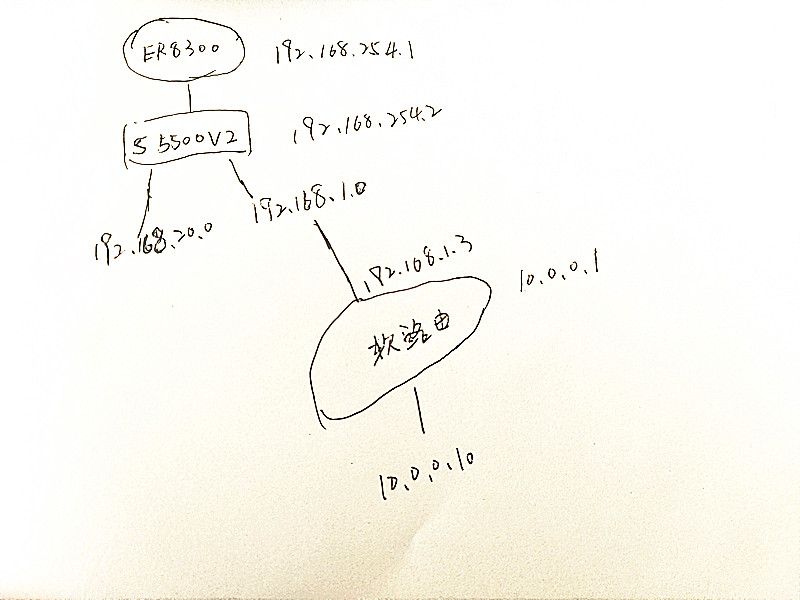 ER8300
192.168.254.1
S5500V2
192.168.254.2
192.168.1.0
192.168.20.0
192.168.1.3
10.0.0.1
软路由
10.0.0.10